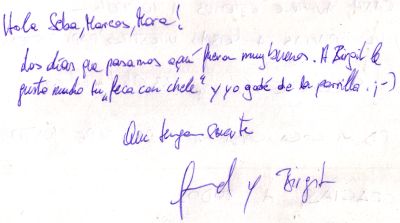 Hola Seba, Marcos, Mara!
Los días que pasamos aquí fueron muy buenos. A Birgit le
gusto mucho tu „feca con chele" y yo gocé de la parrilla. ;-)
Que tengan suerte
y Birgit